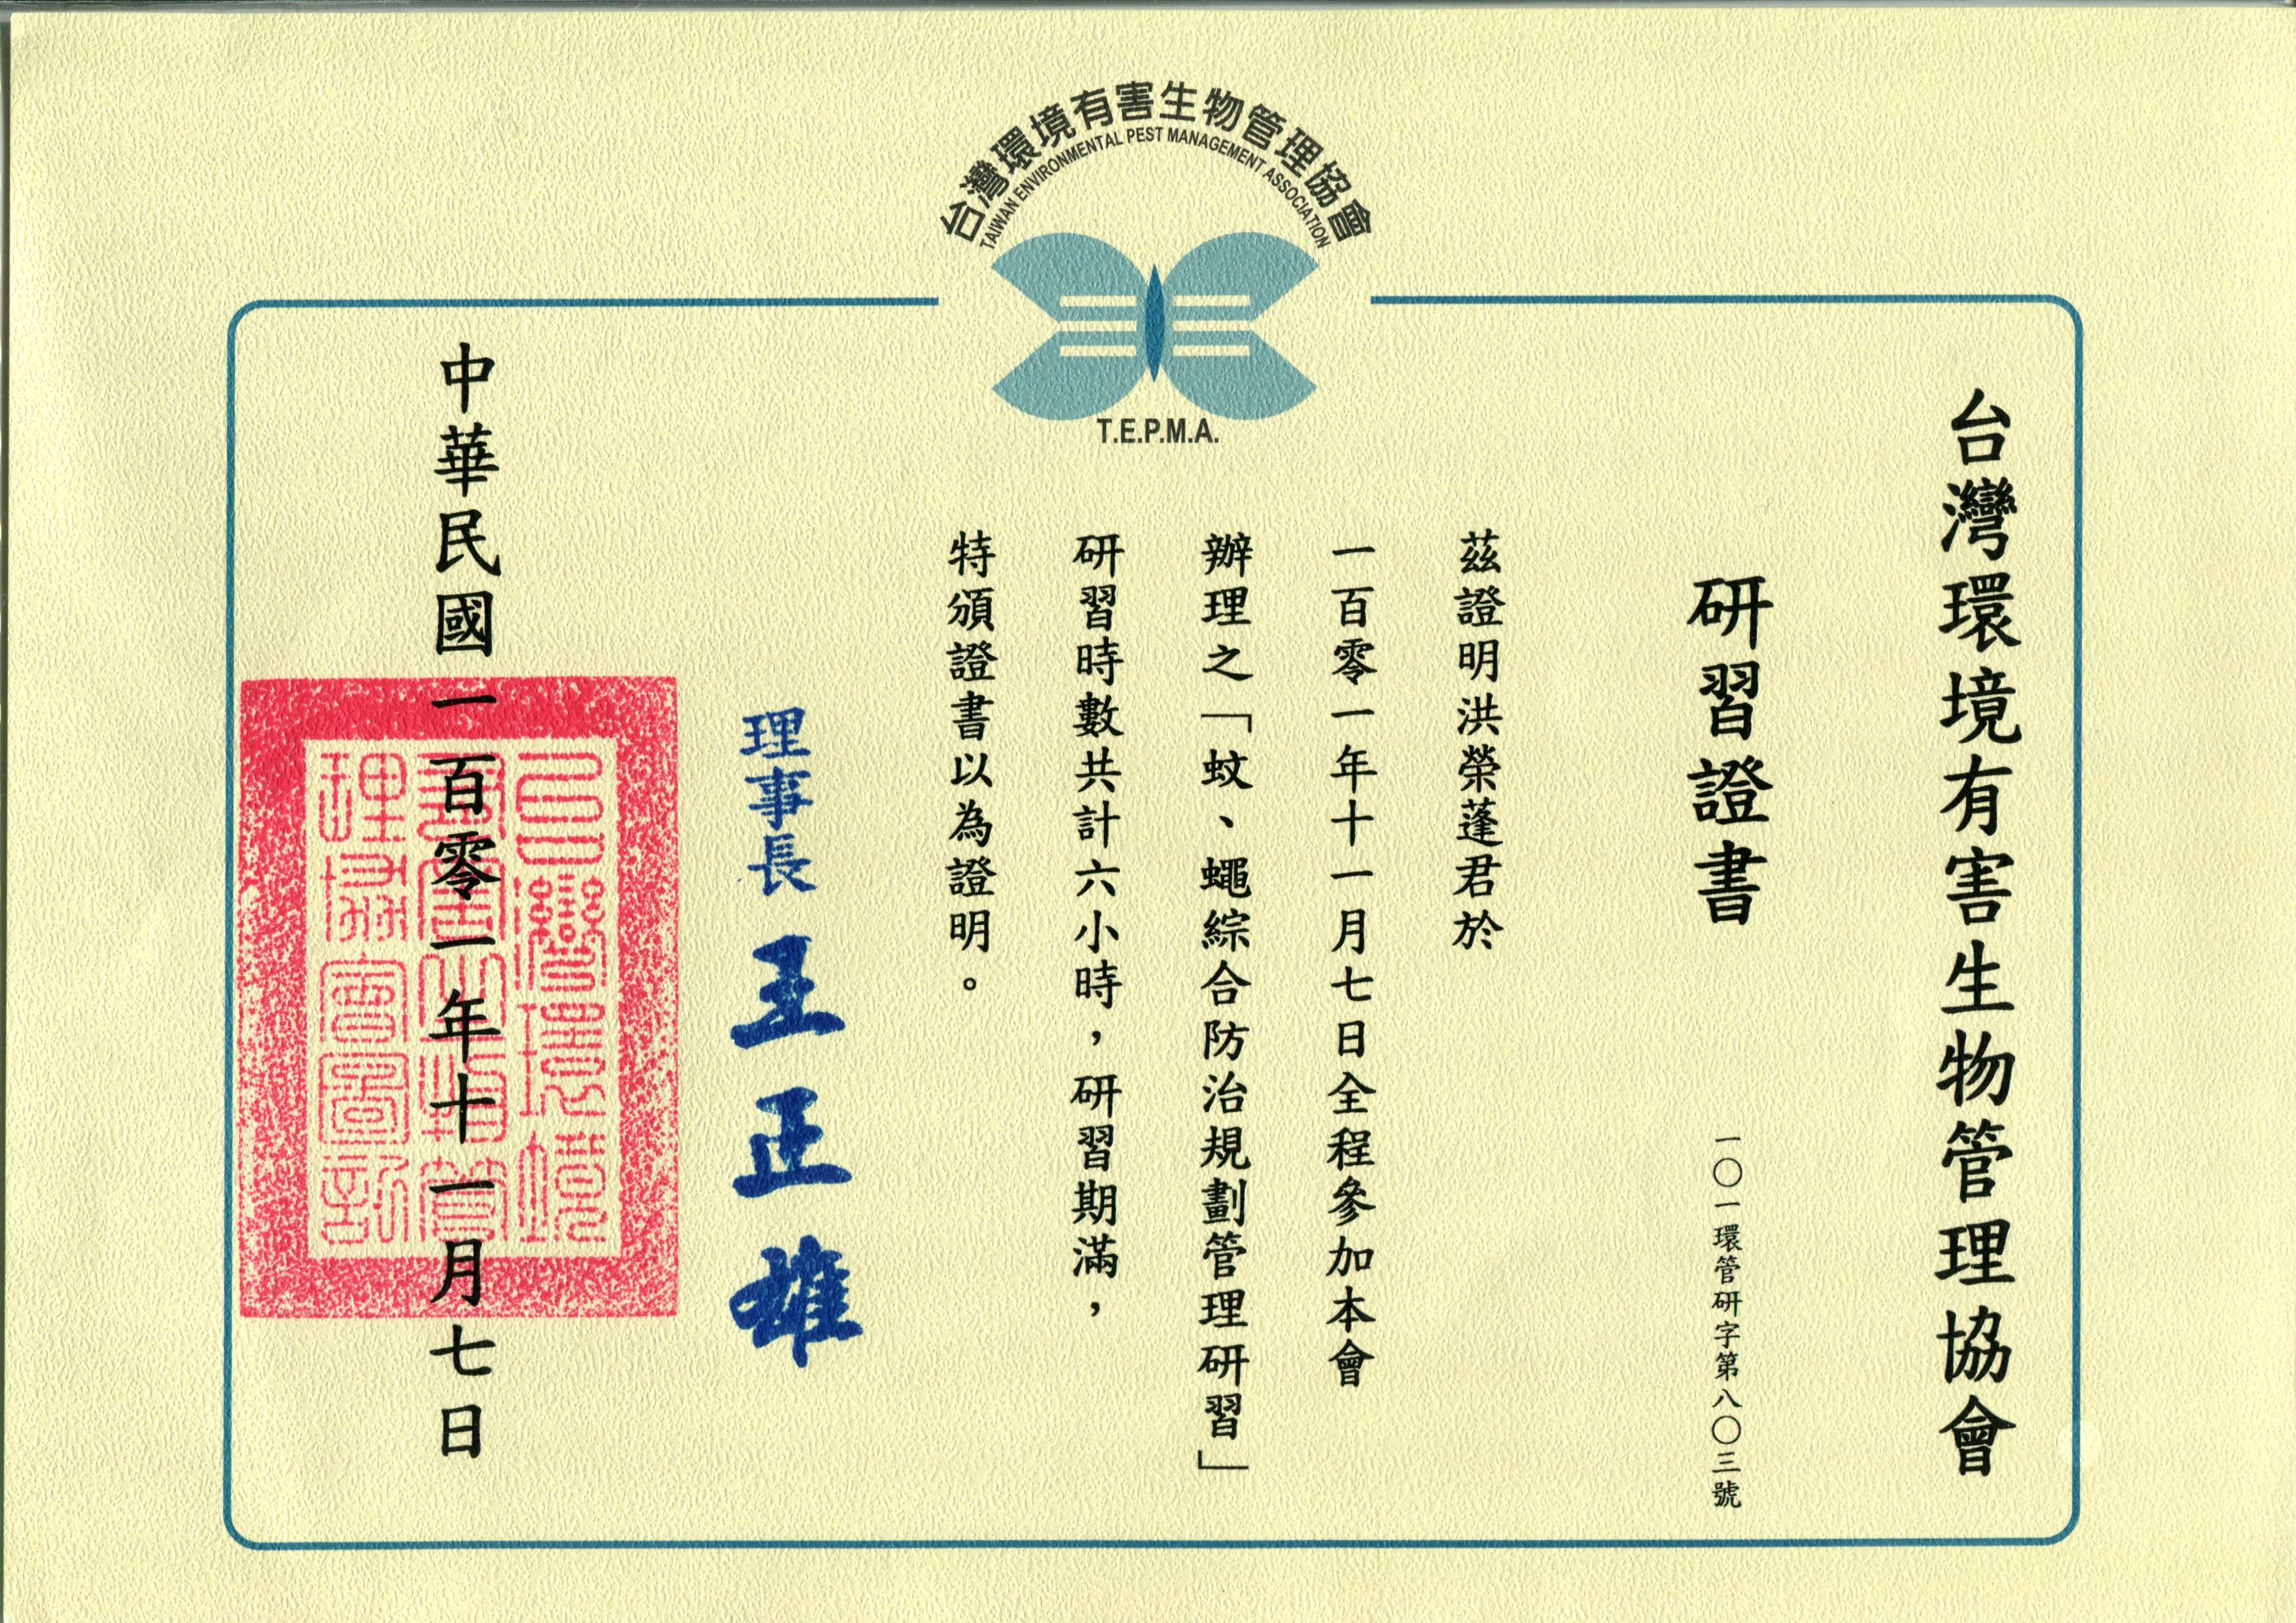 台灣環境有害生物管理協會
TAIWAN ENVIRONMENTAL PEST MANAGEMENT ASSOCIATION
T.E.P.M.A.
台灣環境有害生物管理協會
研習證書
一〇一環管研字第八〇三號
茲證明洪榮蓬君於
一百零一年十一月七日全程參加本會
辦理之「蚊、蠅綜合防治規劃管理研習」
研習時數共計六小時，研習期滿，
特頒證書以為證明。
理事長 王正雄
中華民國一百零一年十一月七日